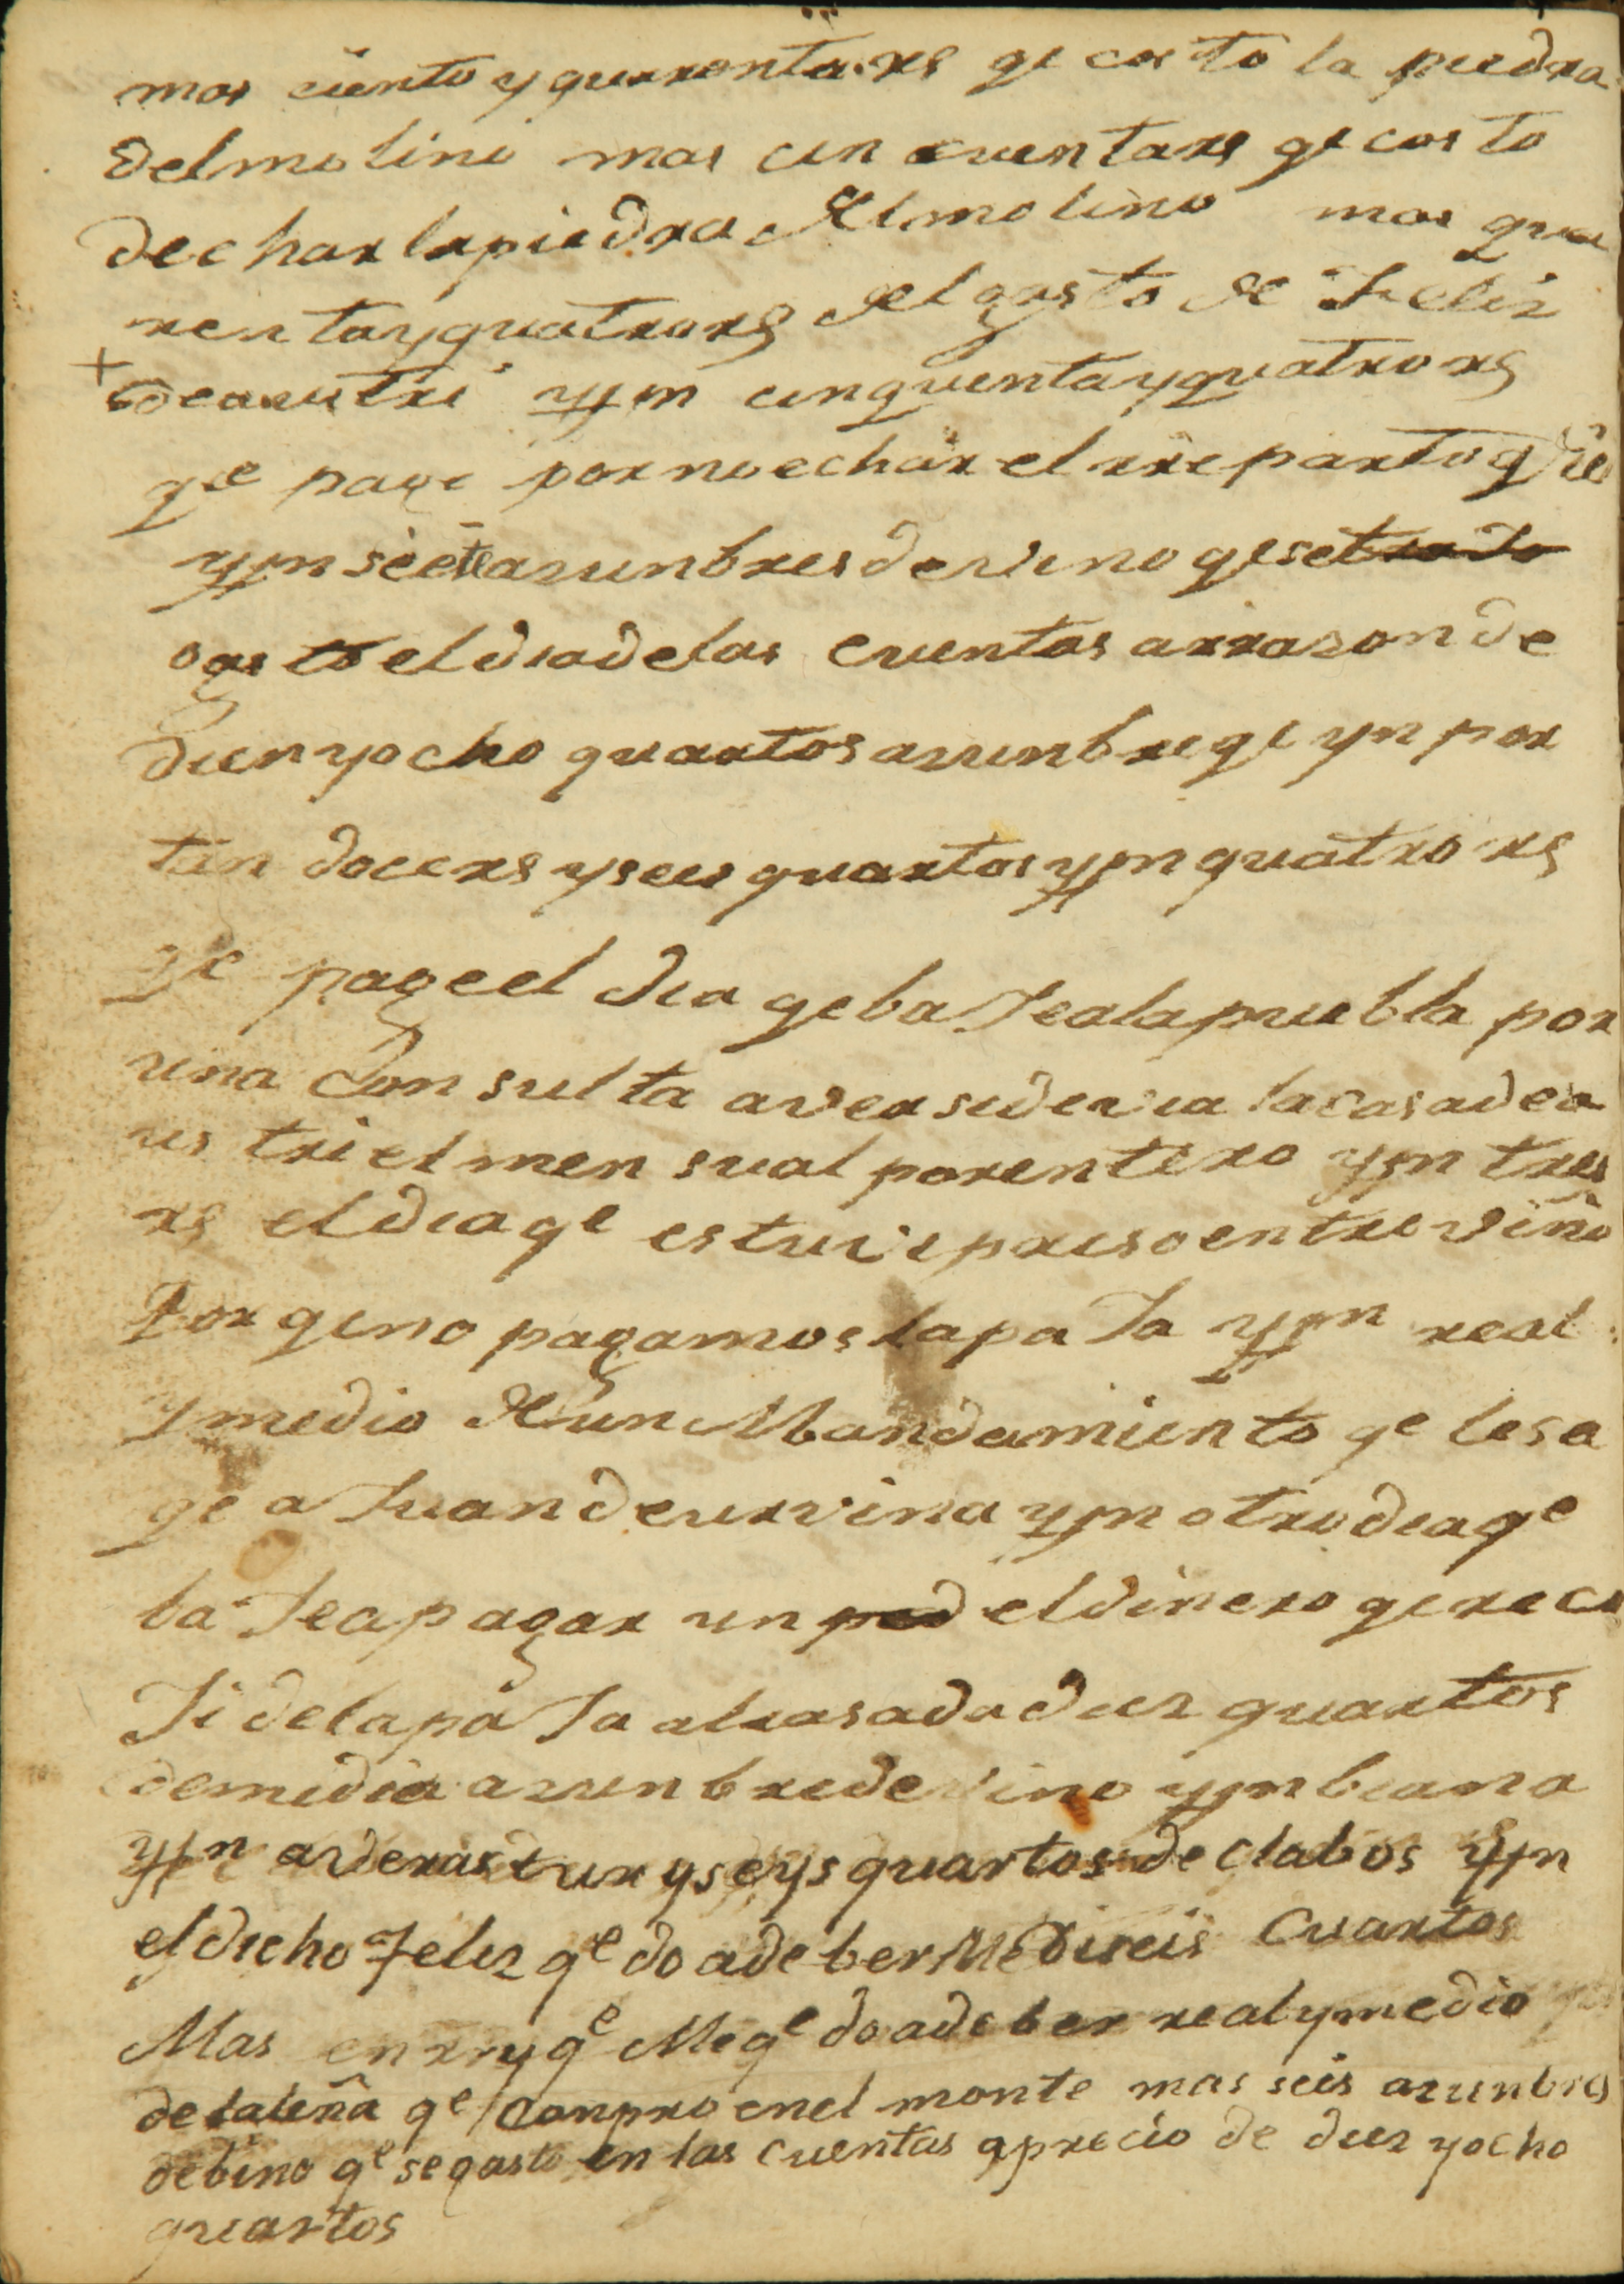 mas ciento y quarenta rs qe costo la piedra
del molino mas cincuenta rs qe costo
dechar la piedra Al molino mas qua
renta y quatro rs del gasto de Feliz
+ de austri ytm cinquenta y quatro rs
qe page por no echar el rreparto
ytm siete azunbres de vino qe se
ogasto el dia de las cuentas arrazon de
dien yocho quartos azunbre qe ynpor
tan doce rs y seis quartos ytm quatro rs
qe page el dia qe baJe a la puebla por
una Consulta a ver si devia la casa de a
us tri el mensual por entero ytm tres
rs el dia qe estuve preso en treviño
Por qe no pagamos la paJa ytm real
y medio de un Mandamiento qe le sa
qe a Juan de urvina ytm otro dia qe
baJe a pagar un el dinero qe reci
Ji de la paJa alrasada diez quartos
de media azunbre de vino ytm
ytm y seys quartos de clabos ytm
el dicho Feliz qedo a deberMe Cuartos
Mas enrryqe Me qedo adeber real y medio
de la leña qe Conpro en el monte mas seis azunbres
de bino qe se gasto en las cuentas a precio de diez yocho
quartos